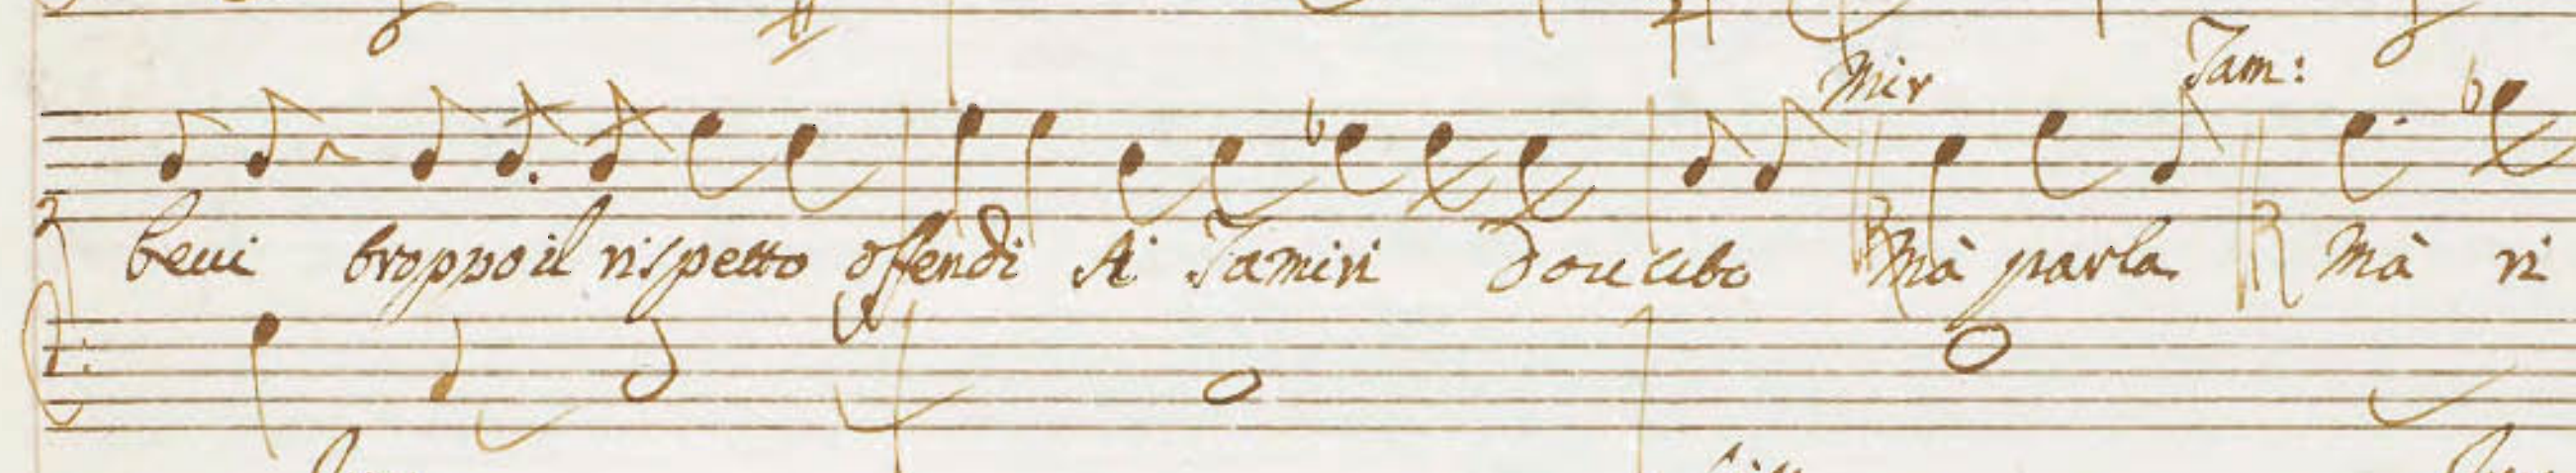 Mir Tam:
beui troppo il rispetto offendi di Tamiri Dou ebbo Mà parla Mà ri